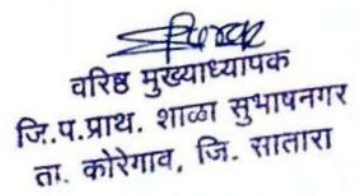 वरिष्ठ मुख्याध्यापक
जि.प.प्राथ. शाळा सुभाषनगर
ता. कोरेगाव, जि. सातारा